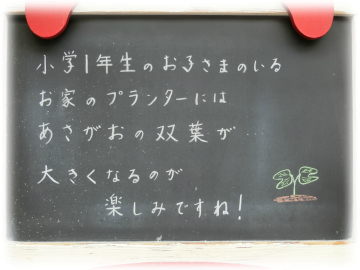 小学1年生のお子さまのいる
お家のプランターには
あさがおの双葉が…
大きくなるのが
楽しみですね!